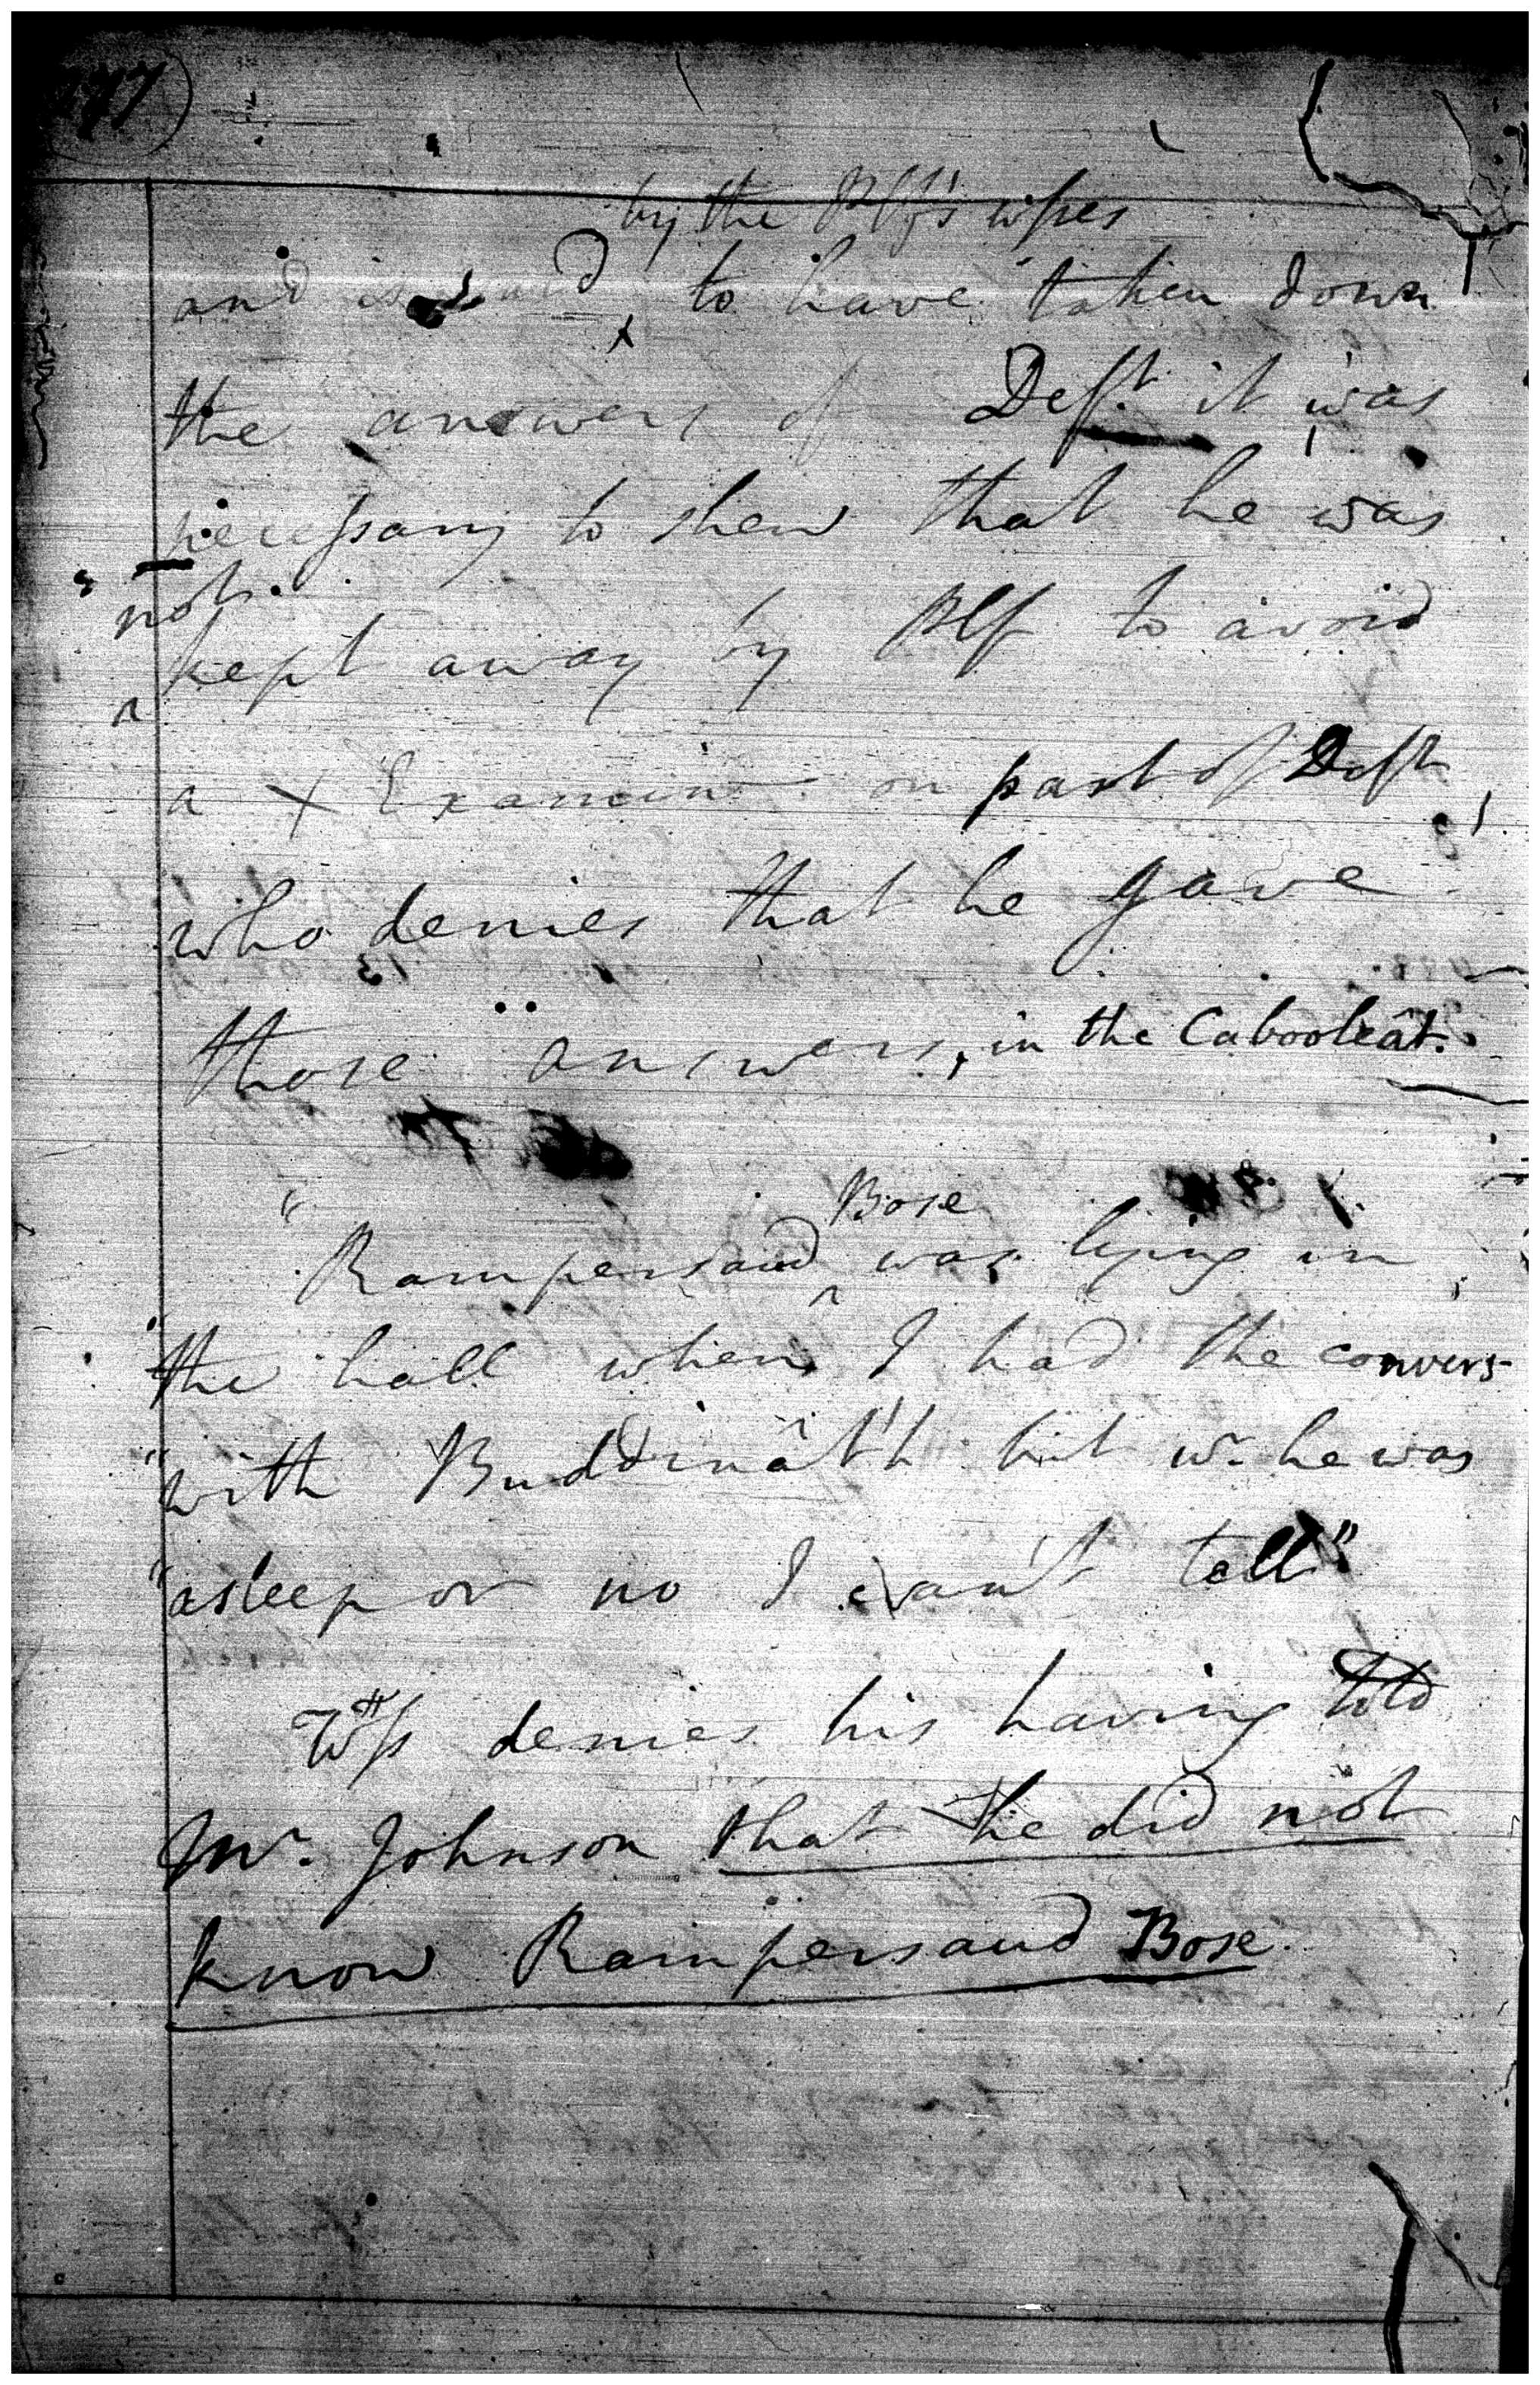 by the Plf's wsses
and is said to have taken down
the answers of Deft. it was
necessary to shew that he was
not
kept away by Plf to avoid
a X Examinn. on part of Deft
who denies that he gave
those answers, in the Cabooleât.
Bose
" Rampersaud ^ was lying in
" the hall when I had the convers-
" with Buddinât'h but wr. he was
" asleep or no I can't tell"
Wss denies his having told
Mr. Johnson that he did not
know Rampersaud Bose.